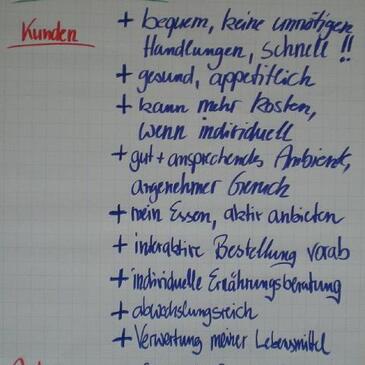 Kunden
+ bequem, keine unnötigen
Handlungen, schnell !!
+ gesund, appetitlich
+ kann mehr kosten,
wenn individuell
+ gut + ansprechendes Ambiente,
angenehmer Geruch
+ mein Essen, aktiv anbieten
+ interaktive Bestellung vorab
+ individuelle Ernährungsberatung
+ abwechslungsreich
+ Verwertung meiner Lebensmittel